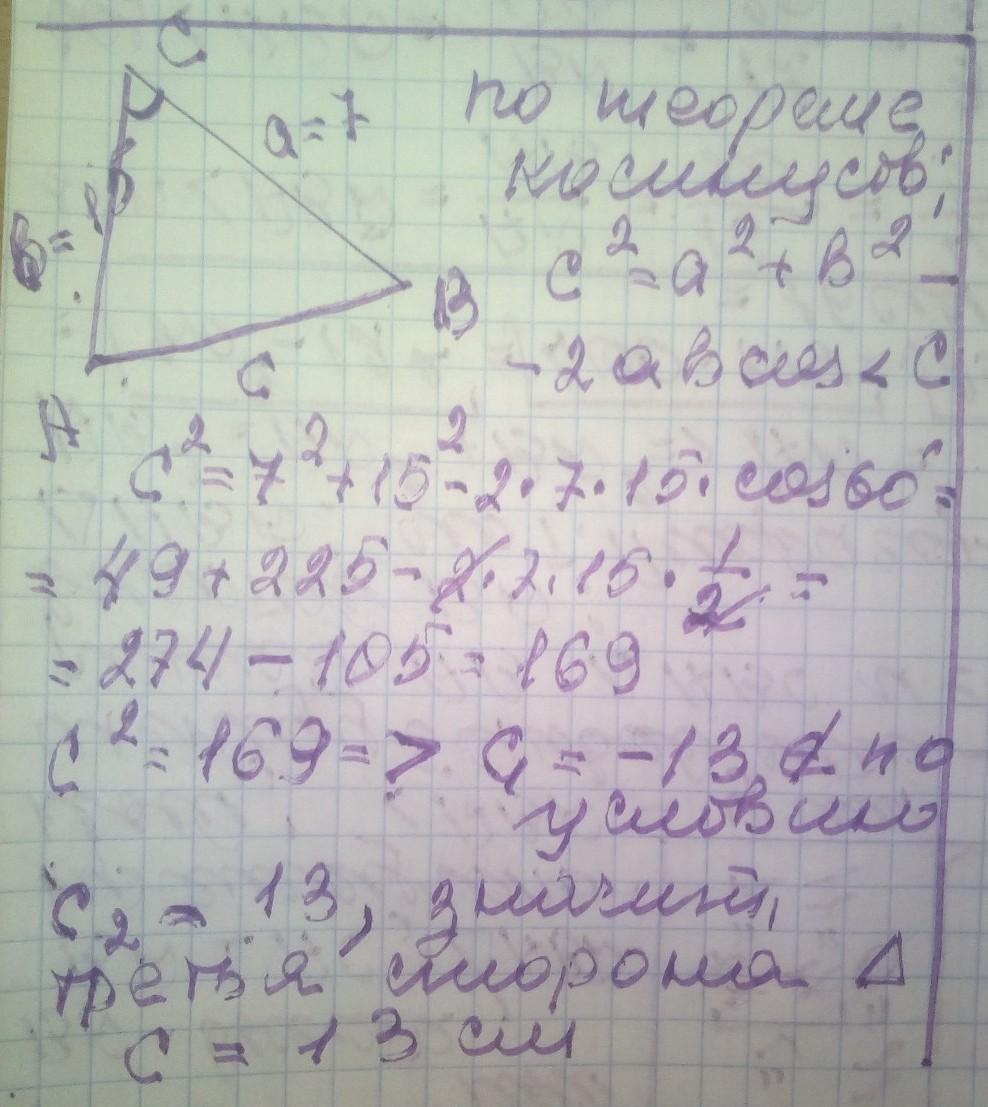 C
a=7
B
c
A
по теореме
косинусов:
c²=a²+b²-
-2ab cos<C
c²=7²+15²-2·7·15·cos60°=
=49+225-2·7·15·1/2=
=274-105=169
c²=169=> c₁=-13 ∉ по
условию
c₂=13, значит,
третья сторона Δ
c=13 см